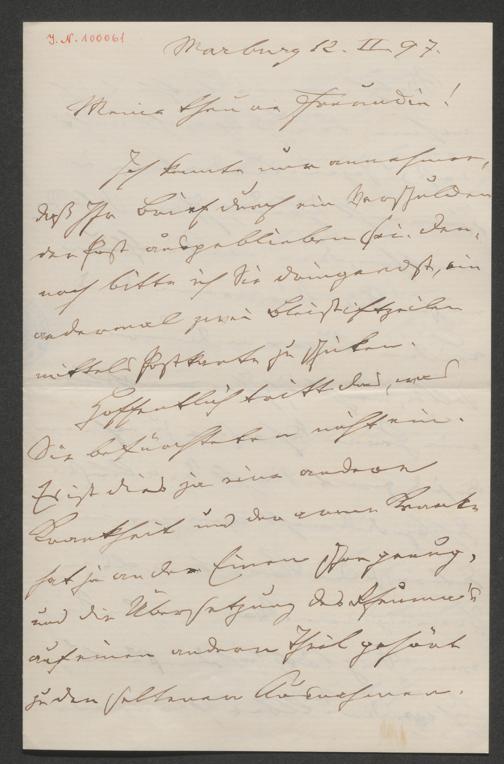 J. N. 100061
Marburg 12. II. 97.
Meine theure Freundin!
Ich konnte nur annehmen,
daß Ihr Brief durch ein Verschulden
der Post ausgeblieben sei. Den-
noch bitte ich Sie dringendst, ein
andermal zwei Bleistiftzeilen
mittels Postkarte zu schicken.
Hoffentlich tritt das, was
Sie befürchteten nicht ein.
Es ist dies ja eine andere
Krankheit und der arme Kranke
hat ja an der Einen schon genug,
und die Übersetzung des Rheuma's
auf einen andern Theil gehört
zu den seltenen Ausnahmen.